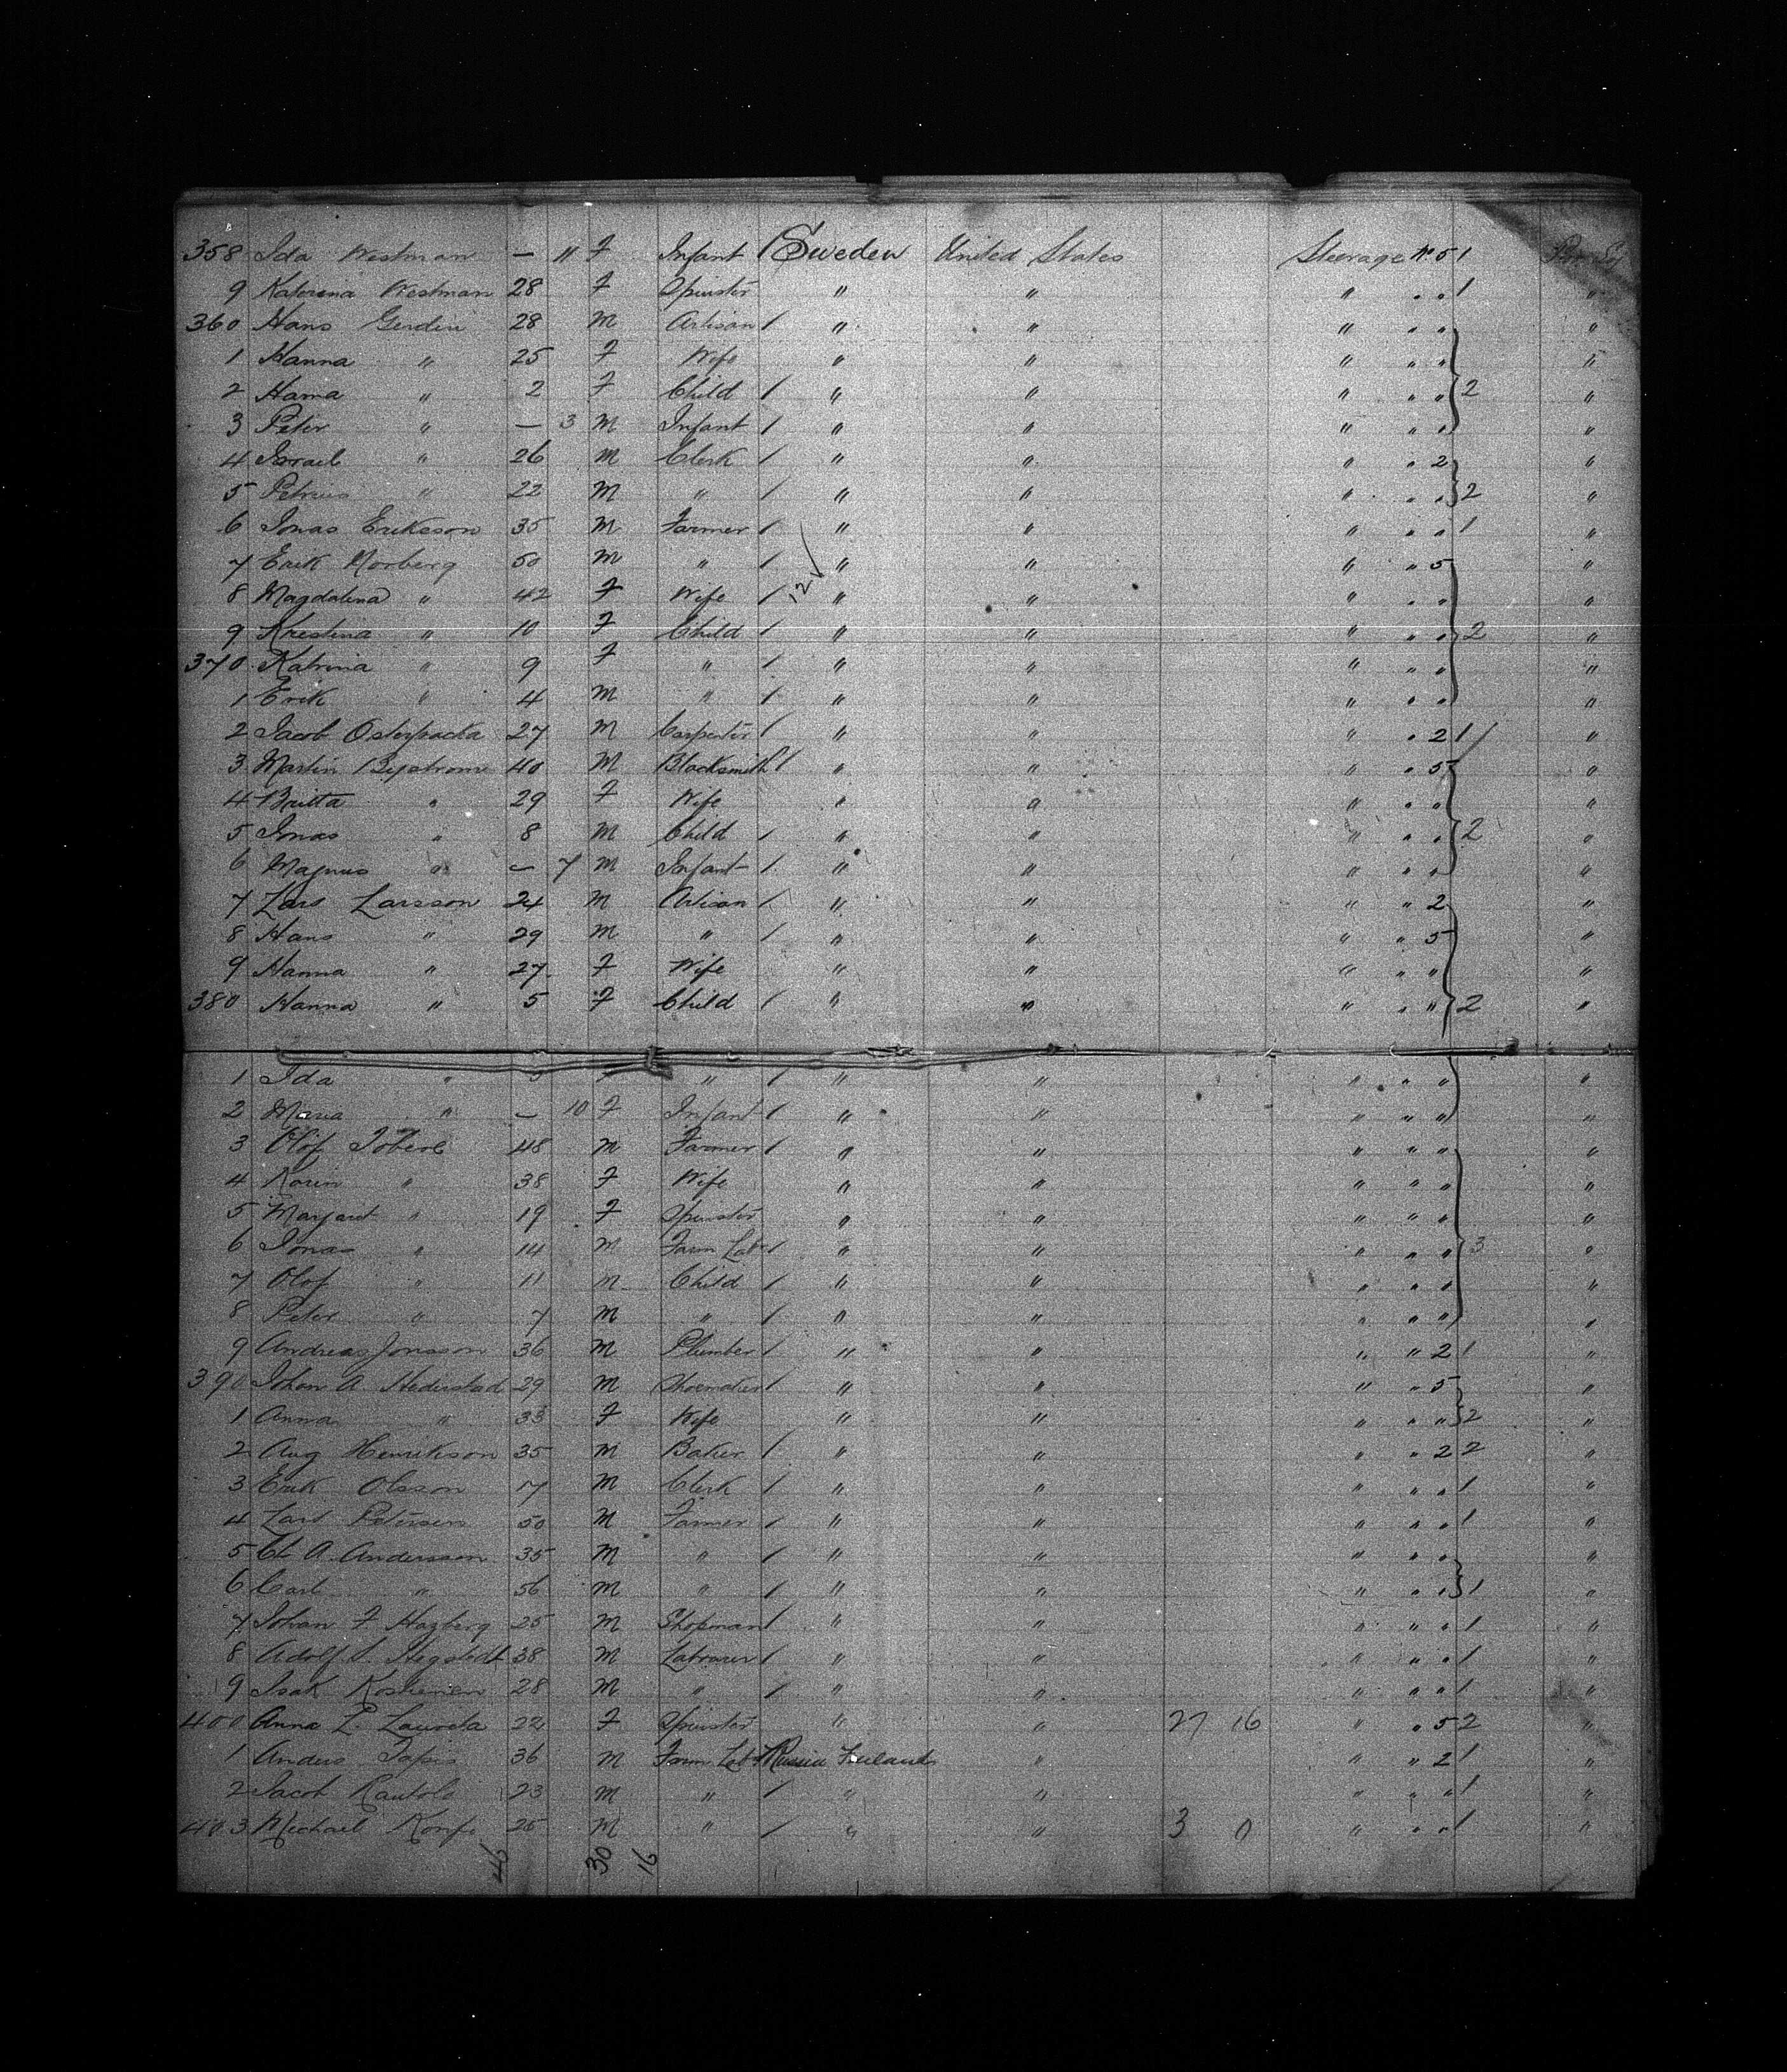 358 Ida Westman — 11 F Infant / Sweden United States Steerage No 5 1
9 Katerina Westman 28 F Spinster " " " " " 1 "
360 Hans Gerdin 28 M Artisan / " " " " " "
1 Hanna " 25 F Wife " " " " " "
2 Hanna " 2 F Child / " " " " " 2 "
3 Peter " — 3 M Infant / " " " " " "
4 Israel " 26 M Clerk / " " " " 2 "
5 Petrus " 22 M " / " " " " " 2 "
6 Jonas Erikeson 35 M Farmer / " " " " " 1 "
7 Erik Norberg 50 M " / " " " " 5 "
8 Magdalena " 42 F Wife / 12 " " " " " "
9 Krestina " 10 F Child / " " " " " 2 "
370 Katrina " 9 F " / " " " " " "
1 Erik " 4 M " / " " " " " "
2 Jacob 27 M Carpenter / " " " " 2 1 / "
3 Martin Bystrom 40 M Blacksmith / " " " " 5 "
4 Britta " 29 F Wife " " " " " "
5 Jonas " 8 M Child / " " " " " 2 "
6 Magnus " — 7 M Infant / " " " " " "
7 Lars Larsson 24 M Artisan / " " " " 2 "
8 Hans " 29 M " / " " " " 5 "
9 Hanna " 27 F Wife " " " " " "
380 Hanna " 5 F Child / " " " " " 2 "
1 Ida " " / " " " " " "
2 Maria " — 10 F Infant / " " " " " "
3 Olof 48 M Farmer / " " " " " "
4 Karin " 38 F Wife " " " " " "
5 Margaret " 19 F Spinster " " " " " "
6 Jonas " 14 M Farm Labr / " " " " " 3 "
7 Olof " 11 M Child / " " " " " "
8 Peter " 7 M " / " " " " " "
9 Andreas Jonsson 36 M Plumber / " " " " 2 1 "
390 Johan A Hederstad 29 M Shoemaker / " " " " 5 "
1 Anna " 33 F Wife " " " " " 2 "
2 Aug Henrikson 35 M Baker / " " " " 2 2 "
3 Erik Olsson 17 M Clerk / " " " " " 1 "
4 Lars Petersen 50 M Farmer / " " " " " 1 "
5 A Andersson 35 M " / " " " " " "
6 Carl " 56 M " / " " " " " 1 "
7 Johan F Hagberg 25 M Shopman / " " " " " 1 "
8 Adolf Hegstedt 38 M Labourer / " " " " " 1 "
9 Isak Koskenen 28 M " / " " " " " 1 "
400 Anna L. 22 F Spinster " " 27 16 " " 5 2 "
1 Anders 36 M Farm Labr Russia " " " 2 1 "
2 Jacob Rautola 23 M " / " " " " " 1 "
403 Michael 25 M " / " " 3 0 " " " 1 "
46 30 16